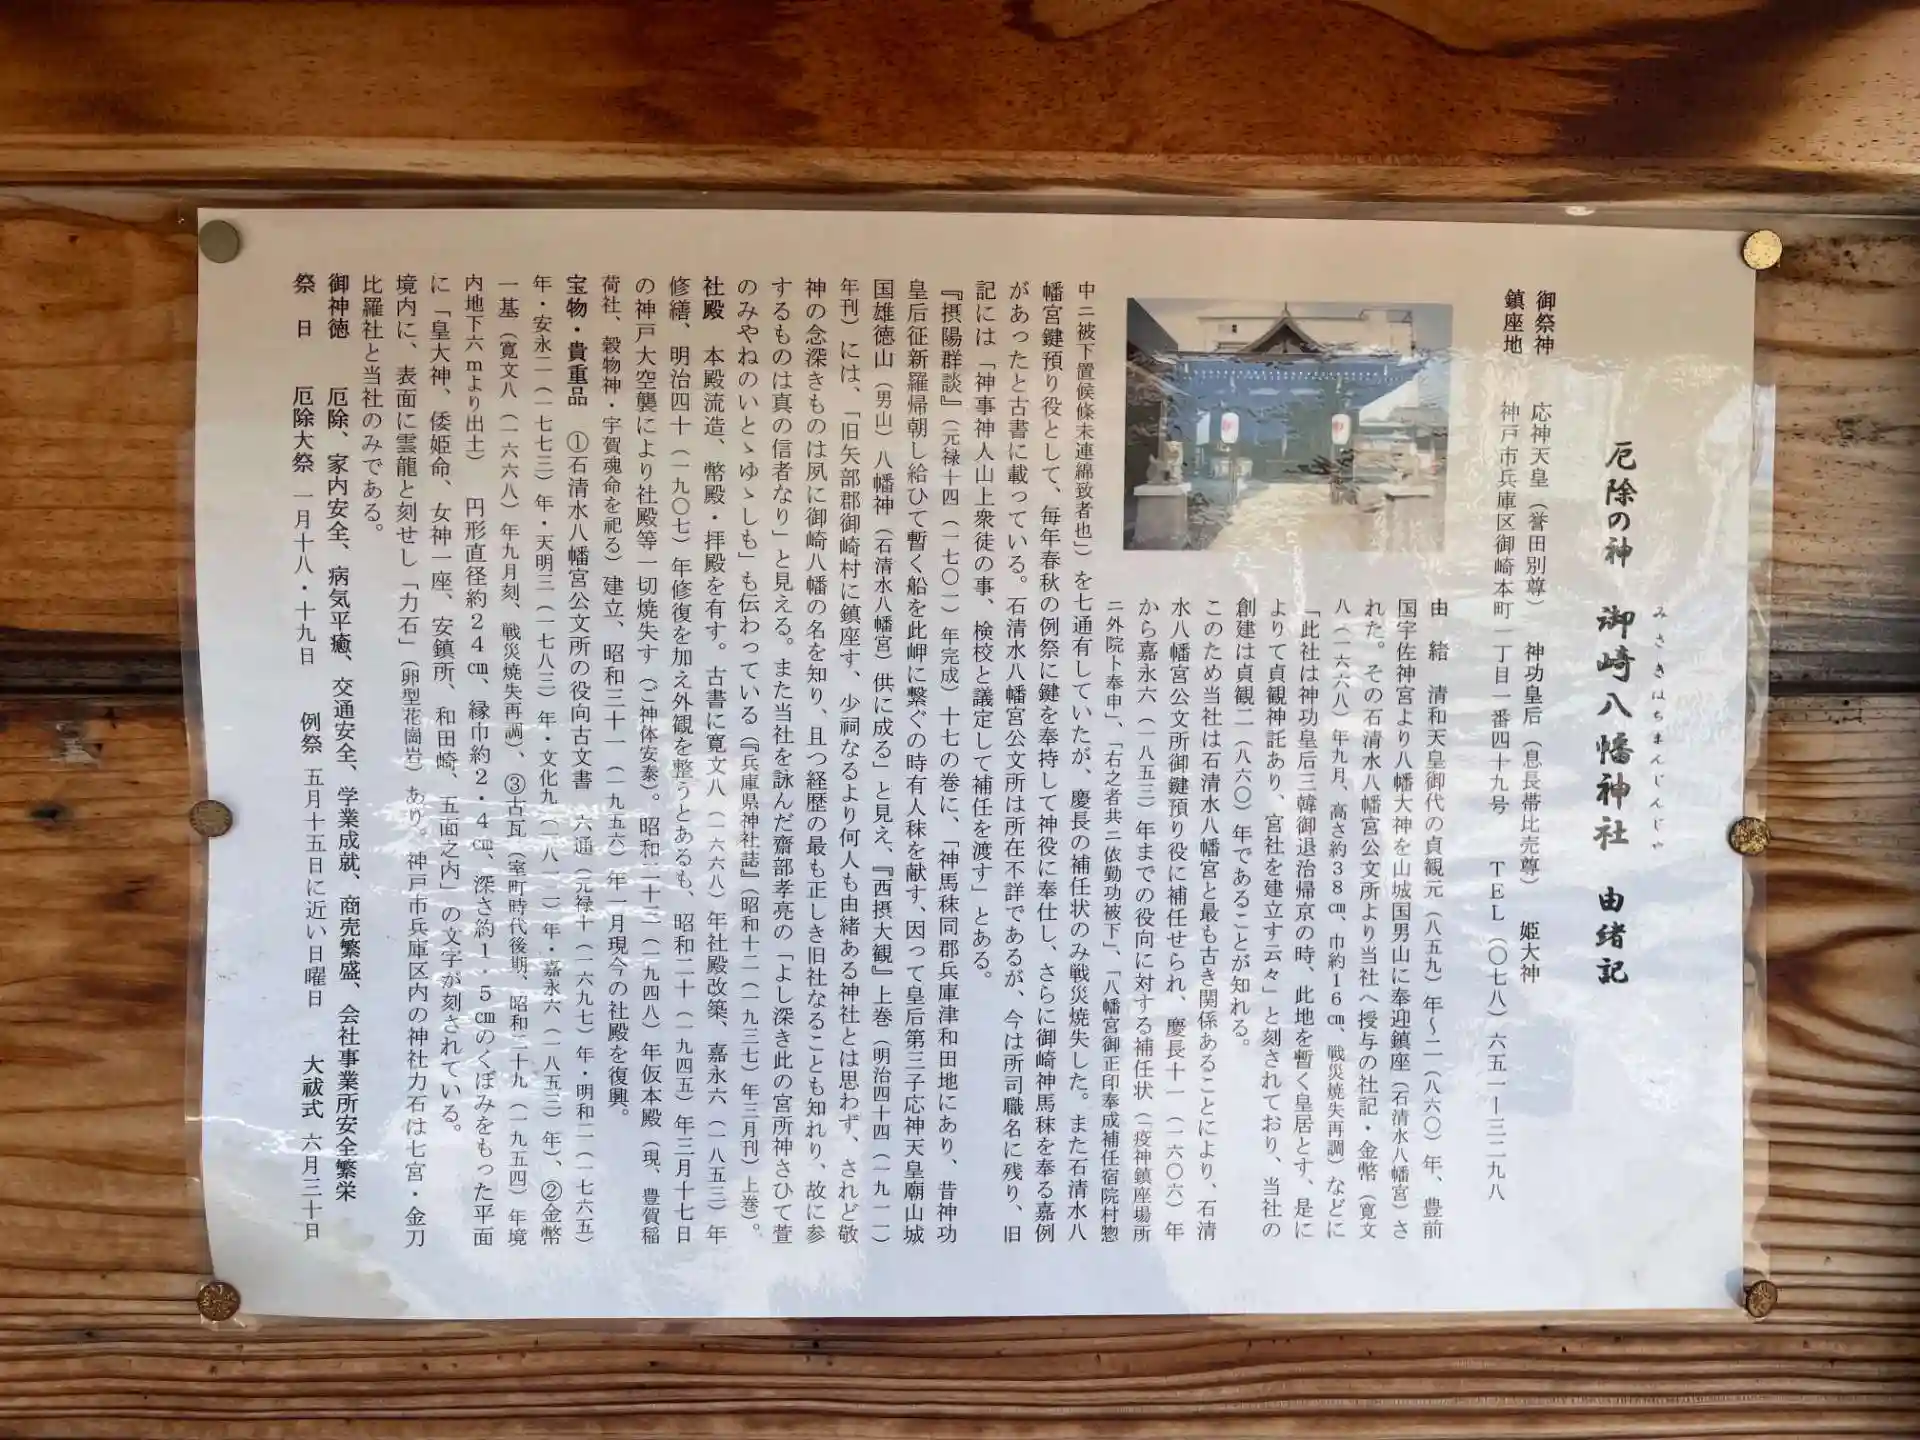 みさきはちまんじんじゃ
厄除の神　御崎八幡神社　由緒記
御祭神　応神天皇（誉田別尊）　神功皇后（息長帯比売尊）　姫大神
鎮座地　神戸市兵庫区御崎本町一丁目一番四十九号　ＴＥＬ（〇七八）六五一ー三二九八
由　緒　清和天皇御代の貞観元（八五九）年～二（八六〇）年、豊前
国宇佐神宮より八幡大神を山城国男山に奉迎鎮座（石清水八幡宮）さ
れた。その石清水八幡宮公文所より当社へ授与の社記・金幣（寛文
八（一六六八）年九月、高さ約３８㎝、巾約１６㎝、戦災焼失再調）などに
「此社は神功皇后三韓御退治帰京の時、此地を暫く皇居とす、是に
よりて貞観神託あり、宮社を建立す云々」と刻されており、当社の
創建は貞観二（八六〇）年であることが知れる。
このため当社は石清水八幡宮と最も古き関係あることにより、石清
水八幡宮公文所御鍵預り役に補任せられ、慶長十一（一六〇六）年
から嘉永六（一八五三）年までの役向に対する補任状（「疫神鎮座場所
ニ外院ト奉申」、「右之者共ニ依勤功被下」、「八幡宮御正印奉成補任宿院村惣
中ニ被下置候條未連綿致者也」）を七通有していたが、慶長の補任状のみ戦災焼失した。また石清水八
幡宮鍵預り役として、毎年春秋の例祭に鍵を奉持して神役に奉仕し、さらに御崎神馬秣を奉る嘉例
があったと古書に載っている。石清水八幡宮公文所は所在不詳であるが、今は所司職名に残り、旧
記には「神事神人山上衆徒の事、検校と議定して補任を渡す」とある。
『摂陽群談』（元禄十四（一七〇一）年完成）十七の巻に、「神馬秣同郡兵庫津和田地にあり、昔神功
皇后征新羅帰朝し給ひて暫く船を此岬に繋ぐの時有人秣を献す、因って皇后第三子応神天皇廟山城
国雄徳山（男山）八幡神（石清水八幡宮）供に成る」と見え、『西摂大観』上巻（明治四十四（一九一一）
年刊）には、「旧矢部郡御崎村に鎮座す、少祠なるより何人も由緒ある神社とは思わず、されど敬
神の念深きものは夙に御崎八幡の名を知り、且つ経歴の最も正しき旧社なることも知れり、故に参
するものは真の信者なり」と見える。また当社を詠んだ齋部孝亮の「よし深き此の宮所神さひて萱
のみやねのいとゝゆゝしも」も伝わっている（『兵庫県神社誌』（昭和十二（一九三七）年三月刊）上巻）。
社殿　本殿流造、幣殿・拝殿を有す。古書に寛文八（一六六八）年社殿改築、嘉永六（一八五三）年
修繕、明治四十（一九〇七）年修復を加え外観を整うとあるも、昭和二十（一九四五）年三月十七日
の神戸大空襲により社殿等一切焼失す（ご神体安泰）。昭和二十三（一九四八）年仮本殿（現、豊賀稲
荷社、穀物神・宇賀魂命を祀る）建立、昭和三十一（一九五六）年一月現今の社殿を復興。
宝物・貴重品　①石清水八幡宮公文所の役向古文書　六通（元禄十（一六九七）年・明和二（一七六五）
年・安永二（一七七三）年・天明三（一七八三）年・文化九（一八一二）年・嘉永六（一八五三）年）、②金幣
一基（寛文八（一六六八）年九月刻、戦災焼失再調）、③古瓦（室町時代後期、昭和二十九（一九五四）年境
内地下六ｍより出土）　円形直径約２４㎝、縁巾約２・４㎝、深さ約１・５㎝のくぼみをもった平面
に「皇大神、倭姫命、女神一座、安鎮所、和田崎、五面之内」の文字が刻されている。
境内に、表面に雲龍と刻せし「力石」（卵型花崗岩）あり。神戸市兵庫区内の神社力石は七宮・金刀
比羅社と当社のみである。
御神徳　厄除、家内安全、病気平癒、交通安全、学業成就、商売繁盛、会社事業所安全繁栄
祭　日　厄除大祭　一月十八・十九日　例祭　五月十五日に近い日曜日　大祓式　六月三十日